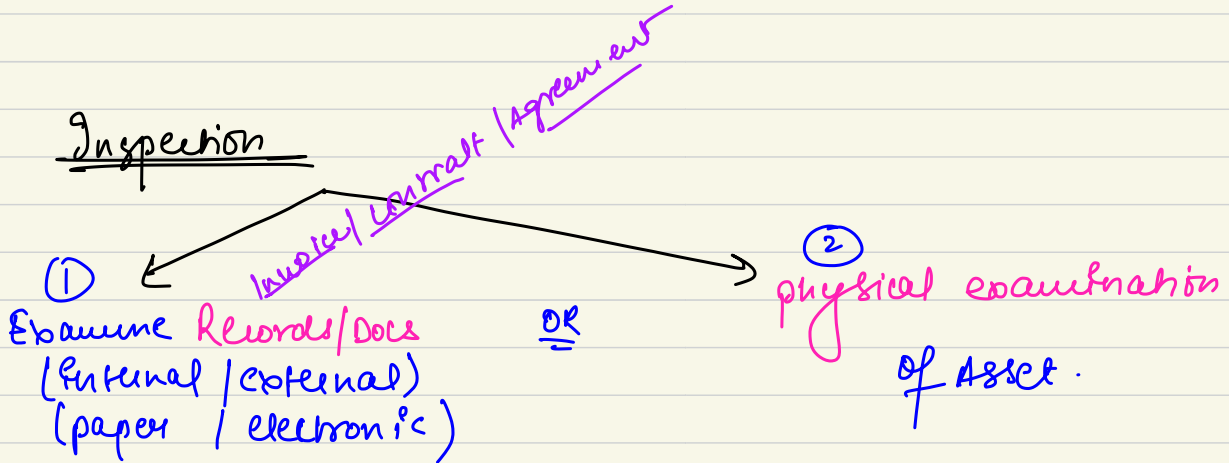 Inspection
Invoice/Contract/Agreement
①
Examine Records/Docs
(internal/external)
(paper/electronic)
OR
②
physical examination
of Asset.